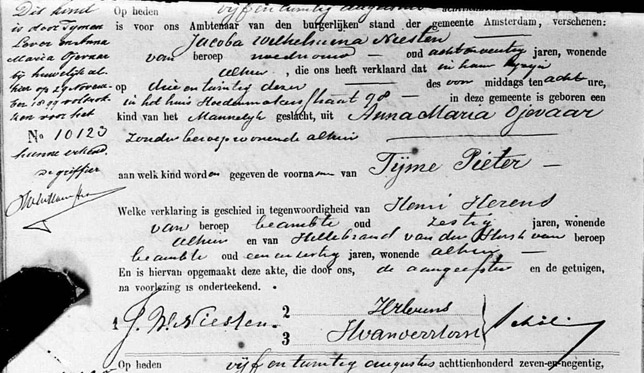 Dit kind
is door Tymen
Lever en Anna
Maria Ojevaar
bij huwelijk al-
hier op 29 Novem-
ber 1899 voltrok-
ken voor het
No 10123
hunne erkend.
De griffier
Op heden vijf en twintig augustus
is voor ons Ambtenaar van den burgerlijken stand der gemeente Amsterdam, verschenen:
Jacoba Wilhelmina Niesten
van beroep vroedvrouw oud achtentwintig jaren, wonende
alhier, die ons heeft verklaard dat in haar bijzijn
op drie en twintig dezer des voor middags ten acht ure,
in het huis Hoedenmakerstraat 98 in deze gemeente is geboren een
kind van het Mannelijk geslacht, uit Anna Maria Ojevaar
zonder beroep wonende alhier
aan welk kind worden gegeven de voornamen van Tijme Pieter
Welke verklaring is geschied in tegenwoordigheid van Henri
van beroep beambte oud zestig jaren, wonende
alhier en van Hillebrand van der Horst van beroep
beambte oud een en zestig jaren, wonende alhier
En is hiervan opgemaakt deze akte, die door ons, de aangeefster en de getuigen,
na voorlezing is onderteekend.
1 J. W. Niesten. 2
3
Op heden vijf en twintig augustus achttienhonderd zeven-en-negentig,